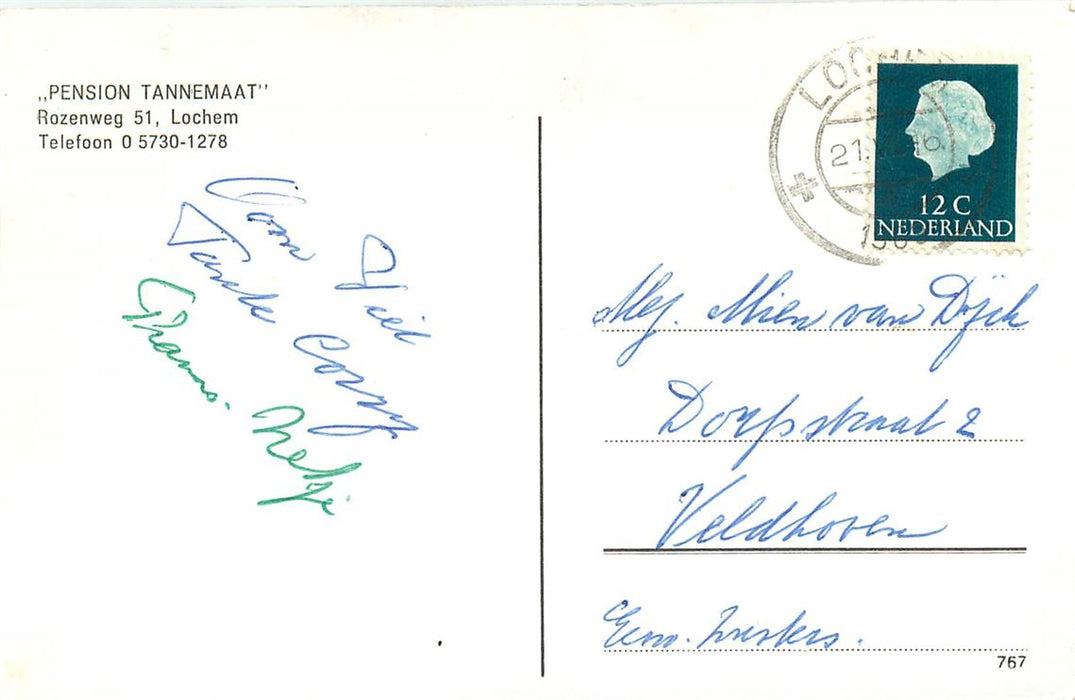 „PENSION TANNEMAAT”
Rozenweg 51, Lochem
Telefoon 0 5730-1278
Oom Piet
Tante Corry
Frans. Netje
LOCHEM
21
12 C
NEDERLAND
Mej. Mien van Dijck
Dorpsstraat 2
Veldhoven
Eerw. Zusters.
767